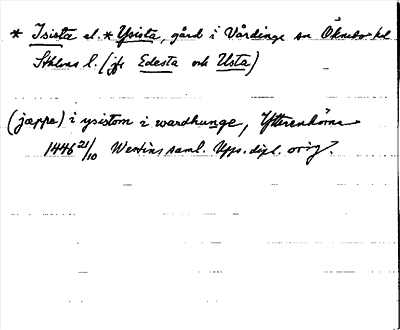 * Isista el. * Ysista, gård i Vårdinge sn Öknebo hd
Sthlms l. (jfr Edesta och Usta)
(jæppe) i ysistom i wardhunge, Ytterenhörna
1446 21/10 Wertins saml. Upps. dipl. orig.